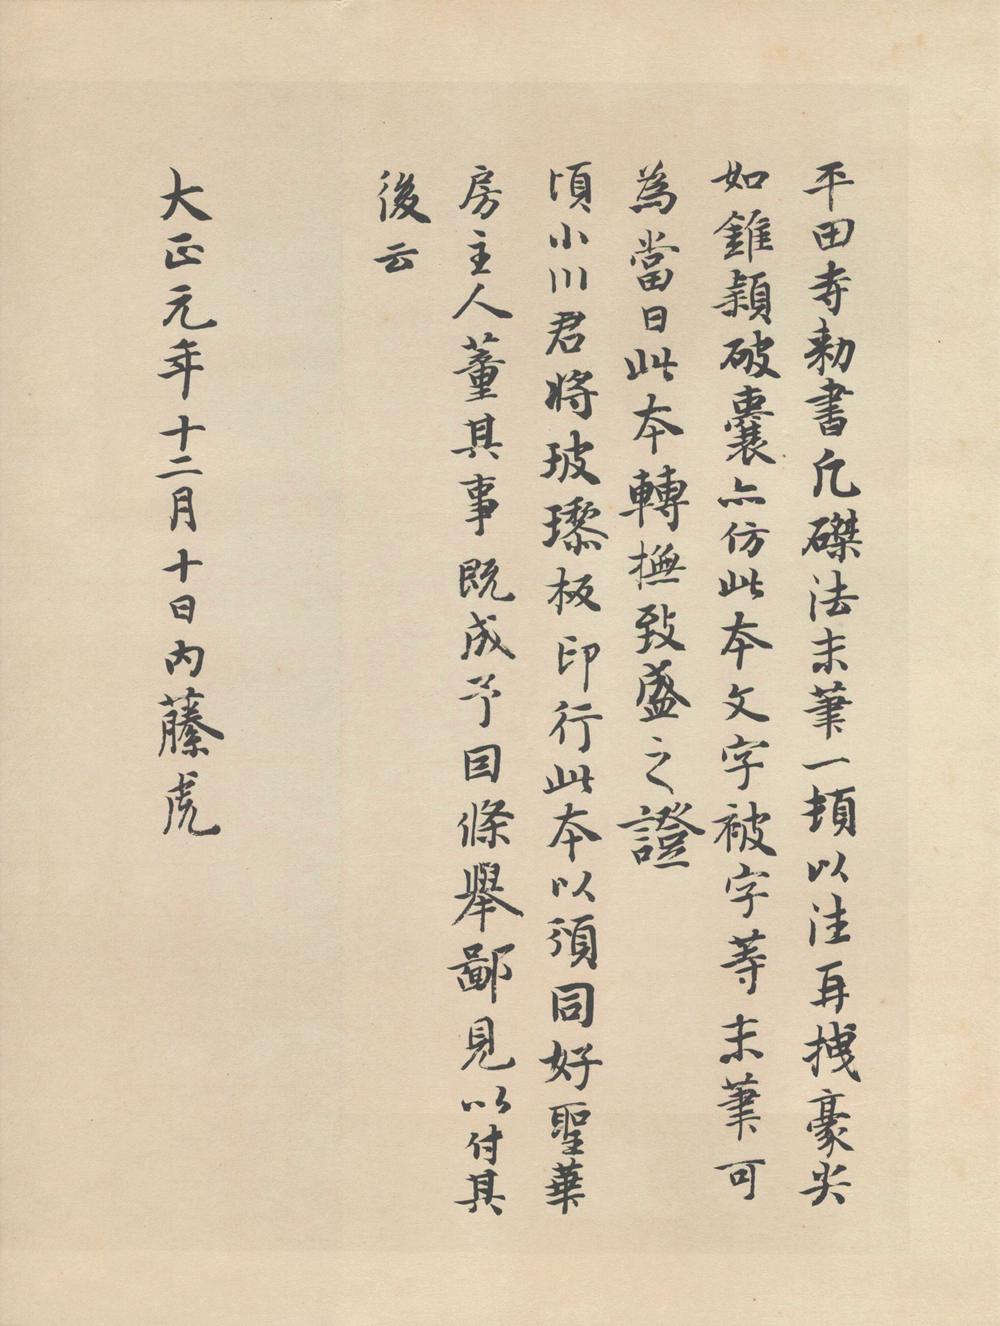 平田寺勅書凡磔法末筆一頓以注再拽豪尖
如錐穎破囊亦仿此本文字被字等末筆可
為當日此本轉橅致盛之證
頃小川君將玻瓈板印行此本以頒同好聖華
房主人董其事既成予因條舉鄙見以付其
後云
大正元年十二月十日內藤虎